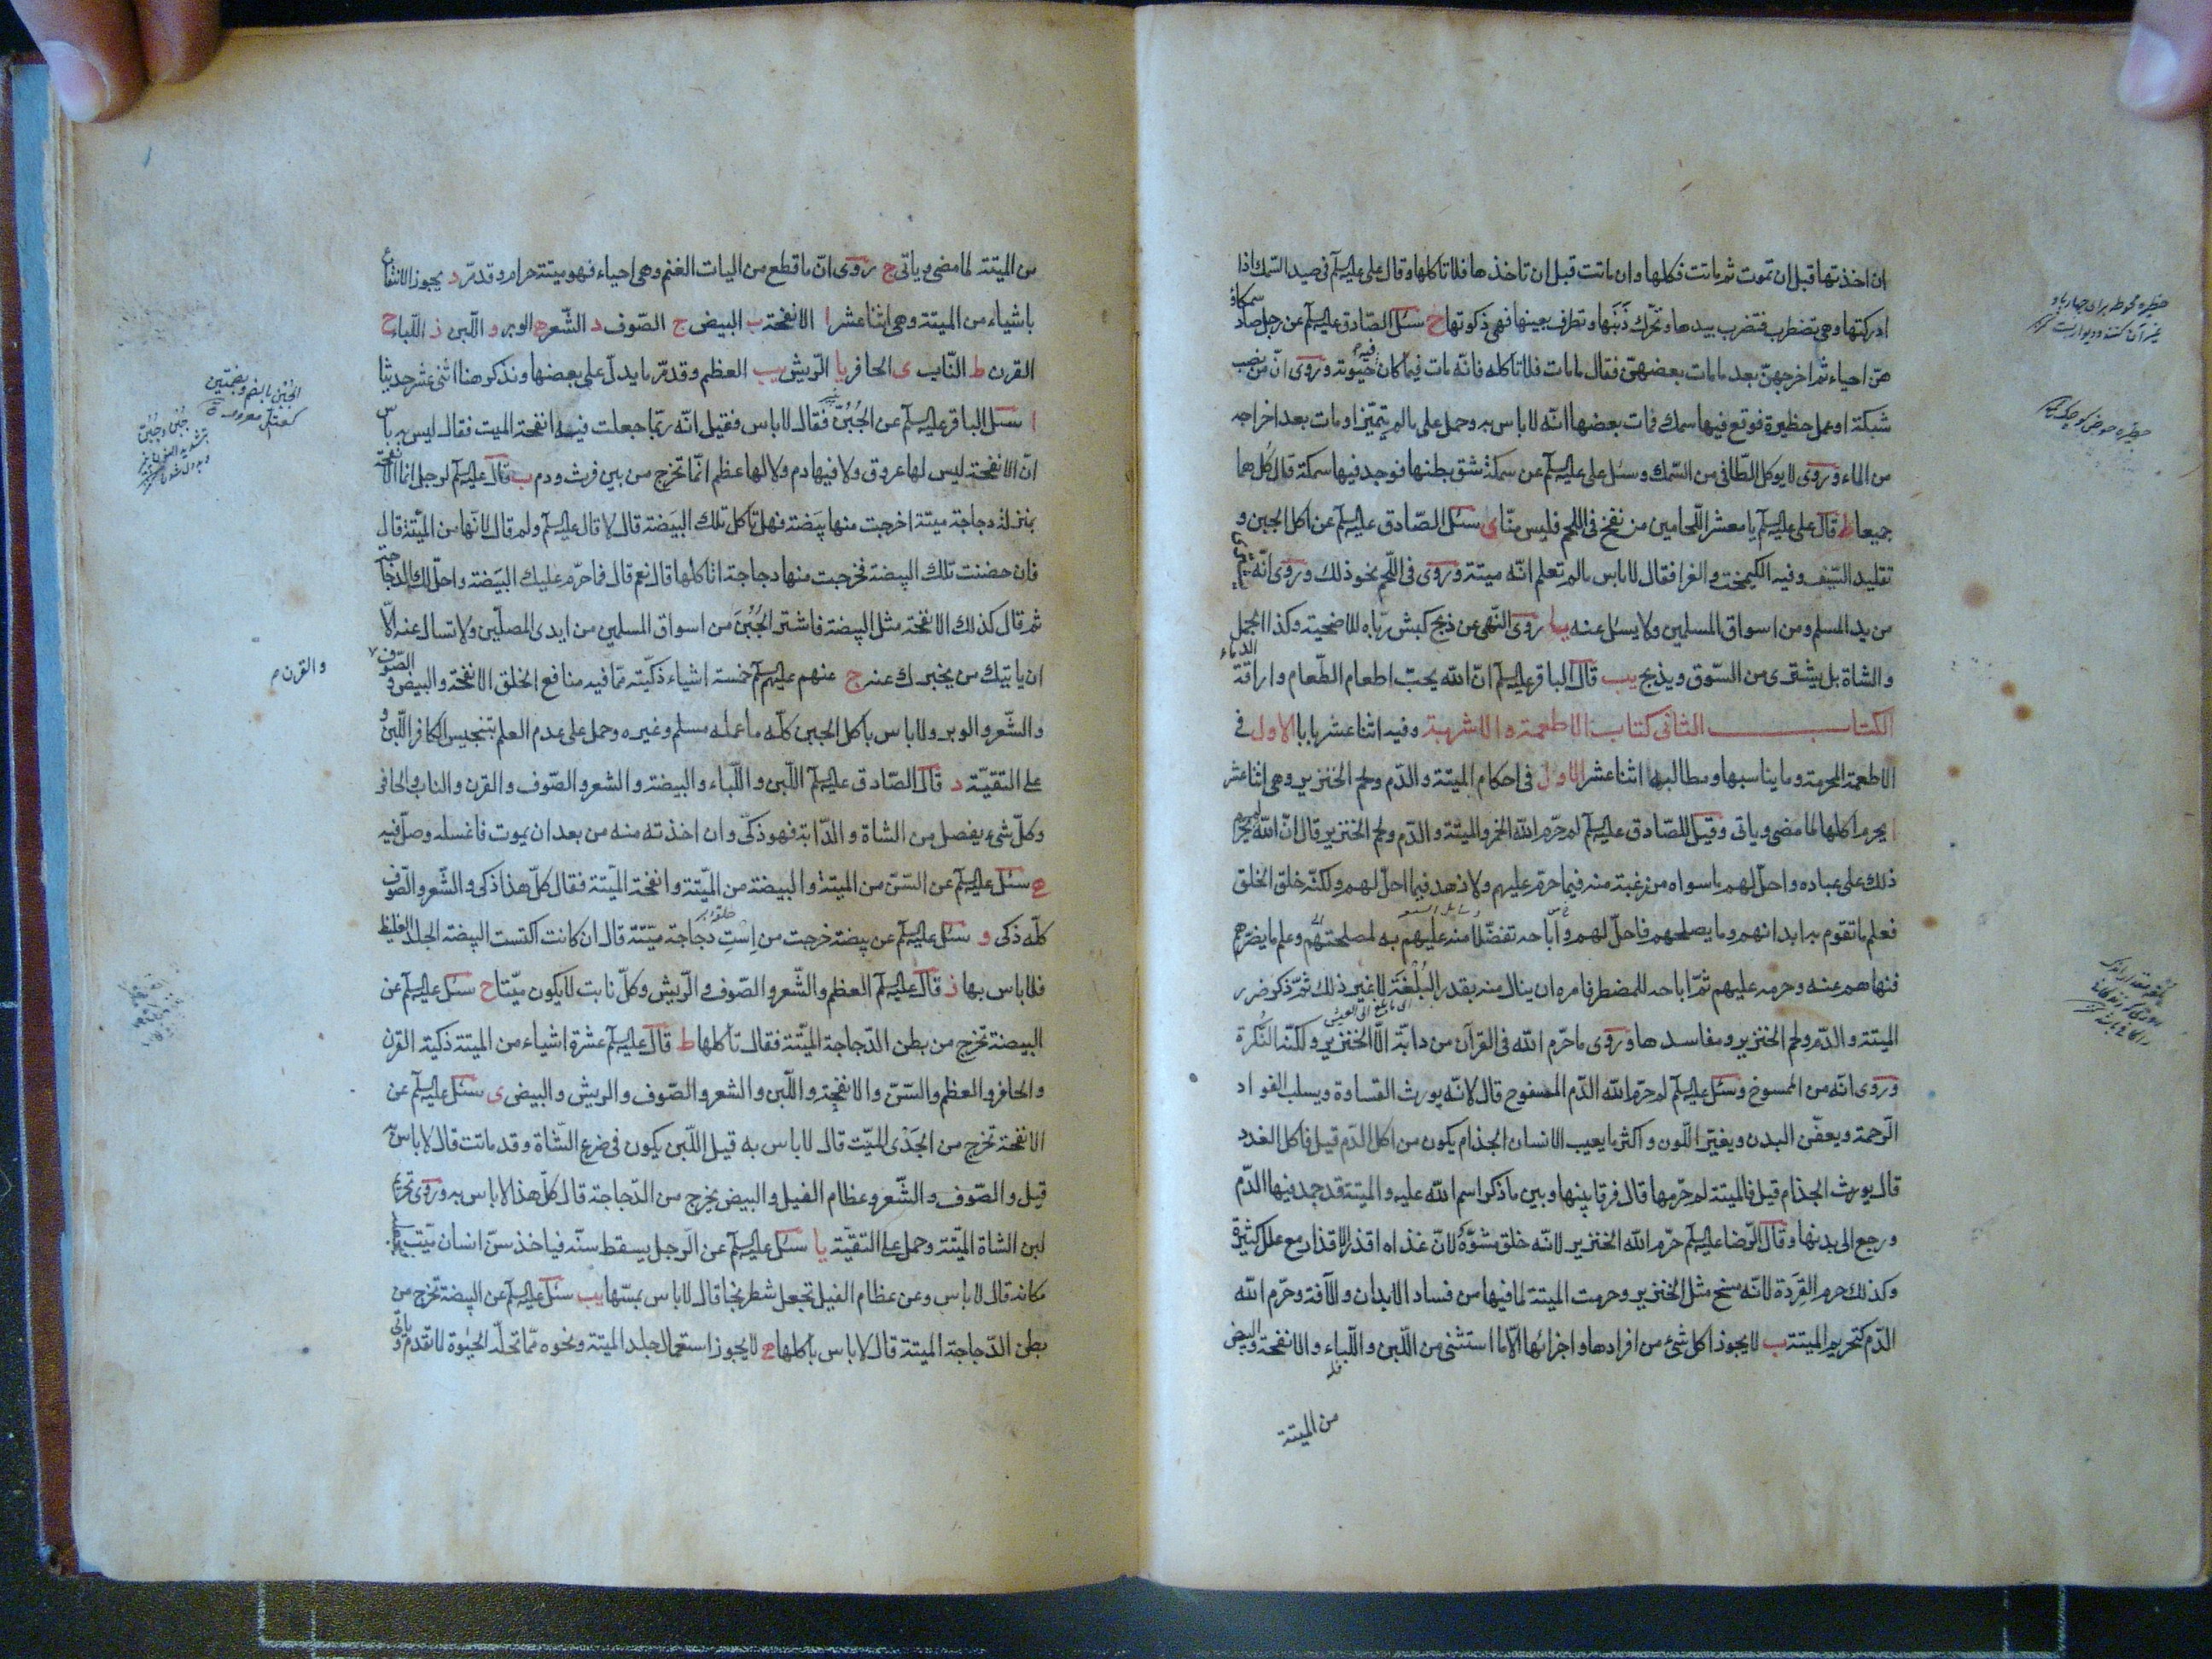 ان اخذتها قبل ان تموت ثم ماتت فكلها وان ماتت قبل ان تاخذها فلا تاكلها وقال علی علیه السلم فی صید السمك اذا
ادركتها وهی تضطرب فتضرب بیدها وتحرّك ذَنَبَها وتطرف بعینها فهی ذكوتها ح سئل الصّادق علیه السلم عن رجل صاد سمكا و
هنّ احیاء ثم اخرجهنّ بعد ما مات بعضهنّ فقال ما مات فلا تاكله فانّه مات فیما كان فیه حیوته وروی انّ من نصب
شبكة او عمل حظیرة فوقع فیها سمك فمات بعضها انّه لا باس به وحمل علی ما لم یتمیّز او مات بعد اخراجه
من الماء وروی لا یوكل الطّافی من السّمك وسئل علی علیه السلم عن سمكة شق بطنها فوجد فیها سمكة قال كُلهما
جمیعا ط قال علی علیه السلم یا معشر اللّحامین من نفخ فی اللحم فلیس منّا ی سئل الصّادق علیه السلم عن اكل الجبن و
تقلید السّیف وفیه الكیمخت والغرا فقال لا باس ما لم تعلم انّه میتة وروی فی اللّحم نحو ذلك وروی انّه یشتری
من ید المسلم ومن اسواق المسلمین ولا یسئل عنه یا روی النّهی عن ذبح كبش ربّاه للاضحیة وكذا الجمل
والشاة بل یشتری من السّوق ویذبح یب قال الباقر علیه السلم انّ الله یحبّ اطعام الطّعام واراقة الدماء
الكتاب الثانی كتاب الاطعمة والاشربة وفیه اثنا عشر بابا الاول فی
الاطعمة المحرمة وما یناسبها ومطالبه اثنا عشر الاول فی احكام المیتة والدّم ولحم الخنزیر وهی اثنا عشر
ا یحرم اكلها لما مضی ویاتی وقیل للصّادق علیه السلم لم حرّم الله الخمر والمیتة والدّم ولحم الخنزیر قال انّ الله لم یحرّم
ذلك علی عباده واحلّ لهم ما سواه من رغبة منه فیما حرّم علیهم ولا زهد فیما احلّ لهم ولكنّه خلق الخلق
فعلم ما تقوم به ابدانهم وما یصلحهم فاحلّ لهم واباحه تفضّلا منه علیهم به لمصلحتهم وعلم ما یضرّهم
فنهاهم عنه وحرمه علیهم ثمّ اباحه للمضطر فامره ان ینال منه بقدر البُلْغَة لا غیر ذلك ثمّ ذكر ضرر
المیتة والدّم ولحم الخنزیر ومفاسدها وروی ما حرّم الله فی القرآن من دابّة الّا الخنزیر ولكنّه النُّكرة
وروی انّه من المسوخ وسئل علیه السلم لم حرّم الله الدّم المسفوح قال لانّه یورث القساوة ویسلب الفواد
الرّحمة ویعفّن البدن ویغیّر اللّون واكثر ما یعیب الانسان الجذام یكون من اكل الدّم قیل فاكل الغدد
قال یورث الجذام قیل فالمیتة لم حرّمها قال فرقا بینها وبین ما ذكر اسم الله علیه والمیتة قد جمد فیها الدّم
ورجع الی بدنها وقال الرّضا علیه السلم حرّم الله الخنزیر لانّه خلق مشوّه لانّ غذاه اقذر الاقذار مع علل كثیرة
وكذلك حرم القِرَدة لانّه مسخ مثل الخنزیر وحرمت المیتة لما فیها من فساد الابدان والآفة وحرّم الله
الدّم كتحریم المیتة ب لا یجوز اكل شیء من افرادها واجزائها الّا ما استثنی من اللّبن واللّباء والانفحة والبیض
من المیتة
من المیتة لما مضی ویاتی ج روی انّ ما قطع من الیات الغنم وهی احیاء فهو میتة حرام وقد مرّ د یجوز الانتفاع
باشیاء من المیتة وهی اثنا عشر ا الانفحة ب البیض ج الصّوف د الشّعر ه الوبر و اللّبن ز اللّباء ح
القرن ط النّاب ی الحافر یا الرّیش یب العظم وقد مرّ ما یدلّ علی بعضها ونذكر هنا اثنی عشر حدیثا
ا سئل الباقر علیه السلم عن الجُبُنّ فقال لا باس فقیل انّه ربّما جعلت فیه انفحة المیت فقال لیس به باس
انّ الانفحة لیس لها عروق ولا فیها دم ولا لها عظم انّما تخرج من بین فرث ودم ب قال علیه السلم لرجل انما الانفحة
بمنزلة دجاجة میتة اخرجت منها بَیَضة فهل تاكل تلك البَیضة قال لا قال علیه السلم ولم قال لانّها من المیّتة قال
فان حضنت تلك البیضة فخرجت منها دجاجة اتاكلها قال نعم قال فما حرّم علیك البَیضة واحلّ لك الدجاجة
ثم قال كذلك الانفحة مثل البیضة فاشتر الجُبُنَ من اسواق المسلمین من ایدی المصلّین ولا تسال عنه الّا
ان یاتیك من یخبرك عنه ج عنهم علیهم السلم خمسة اشیاء ذكّیة ممّا فیه منافع الخلق الانفحة والبیض والصّوف
والشّعر والوبر ولا باس باكل الجبن كلّه ما عمله مسلم وغیره وحمل علی عدم العلم بتنجیس الكافر اللّبن و
علی التقیّة د قال الصّادق علیه السلم اللّبن واللّباء والبیضة والشعر والصّوف والقرن والناب والحافر
وكلّ شیء یفصل من الشاة والدّابة فهو ذكّی وان اخذته منه من بعد ان یموت فاغسله وصلّ فیه
ه سئل علیه السلم عن السّنّ من المیتة والبیضة من المیّتة وانفحة المیّتة فقال كلّ هذا ذكی والشّعر والصّوف
كلّه ذكی و سئل علیه السلم عن بیضة خرجت من اِسْتِ دجاجة میّتة قال ان كانت اكتست البیضة الجلد الغلیظ
فلا باس بها ز قال علیه السلم العظم والشّعر والصّوف والرّیش وكلّ نابت لا یكون میّتا ح سئل علیه السلم عن
البیضة تخرج من بطن الدّجاجة المیّتة فقال تاكلها ط قال علیه السلم عشرة اشیاء من المیتة ذكیة القرن
والحافر والعظم والسّنّ والانفحة واللّبن والشعر والصّوف والریش والبیض ی سئل علیه السلم عن
الانفحة تخرج من الجَدْی المیّت قال لا باس به قیل اللّبن یكون فی ضرع الشّاة وقد ماتت قال لا باس به
قیل والصّوف والشّعر وعظام الفیل والبیض یخرج من الدّجاجة قال كلّ هذا لا باس به وروی تحریم
لبن الشاة المیّتة وحمل علی التقیّة یا سئل علیه السلم عن الرّجل یسقط سنّه فیاخذ سنّ انسان میّت فیجعله
مكانه قال لا باس وعن عظام الفیل تجعل شطرنجا قال لا باس بمسّها یب سئل علیه السلم عن البیضة تخرج من
بطن الدّجاجة المیتة قال لا باس باكلها ه لا یجوز استعمال جلد المیتة ونحوه ممّا تحلّه الحیٰوة لما تقدم ویاتی
والقرن م